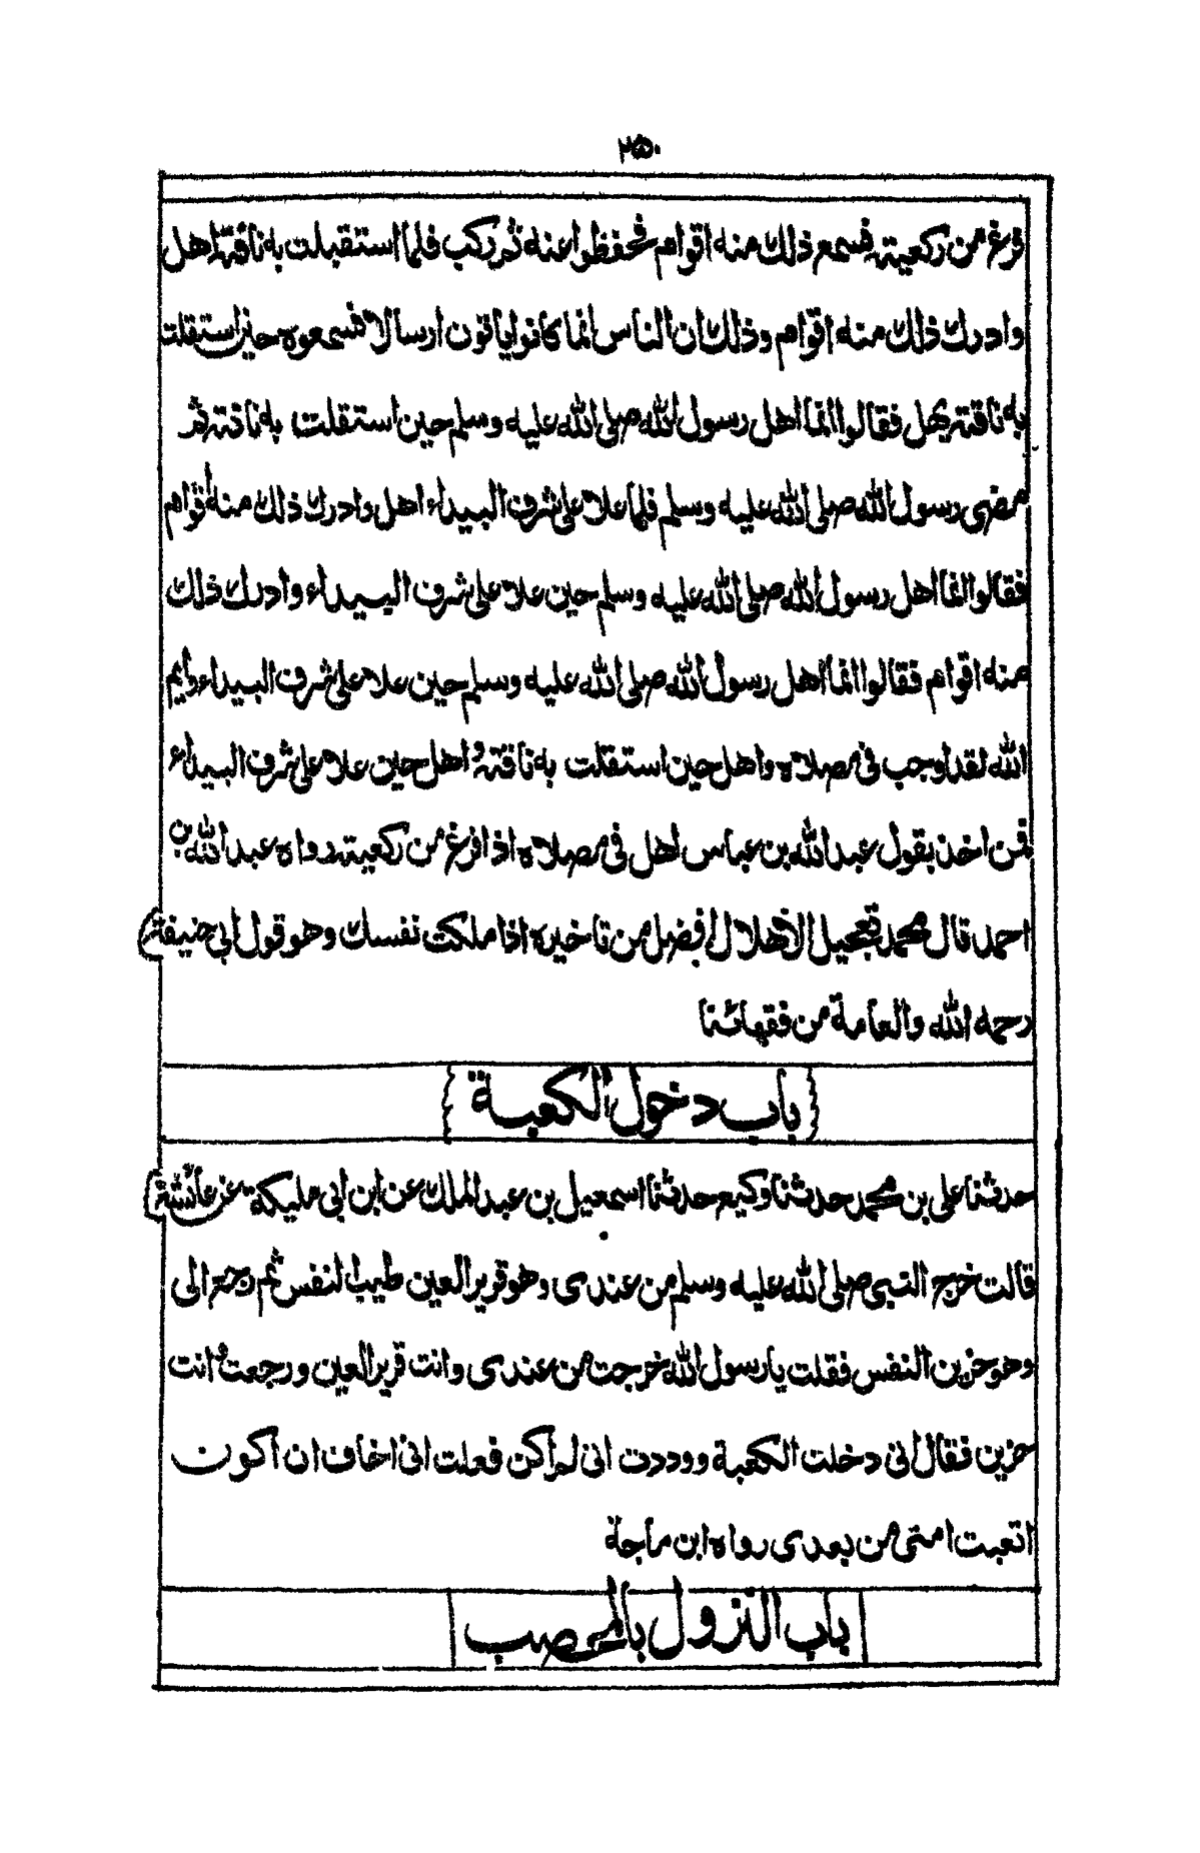 ٢٥٠
فرغ من ركعيته فسمع ذلك منه اقوام فحفظوا عنه ثم ركب فلما استقبلت به ناقته اهل
وادرك ذلك منه اقوام وذلك ان الناس انما كانوا ياتون ارسالا فسمعوه حين استقلت
به ناقته يهل فقالوا انما اهل رسول الله صلى الله عليه وسلم حين استقلت به ناقته ثم
مضى رسول الله صلى الله عليه وسلم فلما علا على شرف البيداء اهل وادرك ذلك منه اقوام
فقالوا انما اهل رسول الله صلى الله عليه وسلم حين علا على شرف البيداء وادرك ذلك
منه اقوام فقالوا انما اهل رسول الله صلى الله عليه وسلم حين علا على شرف البيداء وايم
الله لقد اوجب فى مصلاه واهل حين استقلت به ناقته واهل حين علا على شرف البيداء
فمن اخذ بقول عبد الله بن عباس اهل فى مصلاه اذا فرغ من ركعيته رواه عبد الله بن
احمد قال محمد تعجيل الاهلال افضل من تاخيره اذا ملكت نفسك وهو قول ابى حنيفة
رحمه الله والعامة من فقهائنا
باب دخول الكعبة
حدثنا على بن محمد حدثنا وكيع حدثنا اسمعيل بن عبد الملك عن ابن ابى مليكة عن عائشة
قالت خرج النبى صلى الله عليه وسلم من عندى وهو قرير العين طيب النفس ثم رجع الى
وهو حزين النفس فقلت يا رسول الله خرجت من عندى وانت قرير العين ورجعت وانت
حزين فقال انى دخلت الكعبة ووددت انى لم اكن فعلت انى اخاف ان اكون
اتعبت امتى من بعدى رواه ابن ماجة
باب النزول بالمحصب